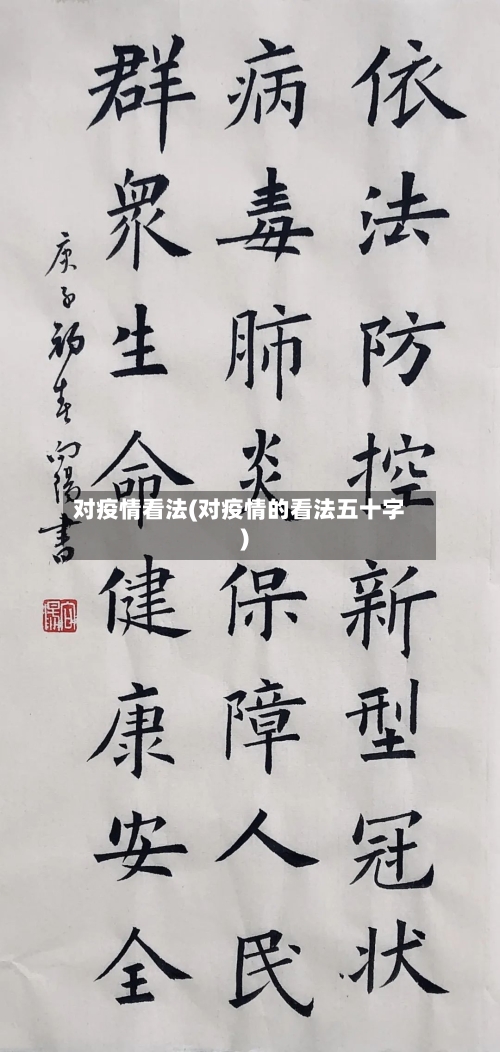 依法防控新型冠状
病毒肺炎保障人民
群眾生命健康安全
庚子初春向陽書
对疫情看法(对疫情的看法五十字
)